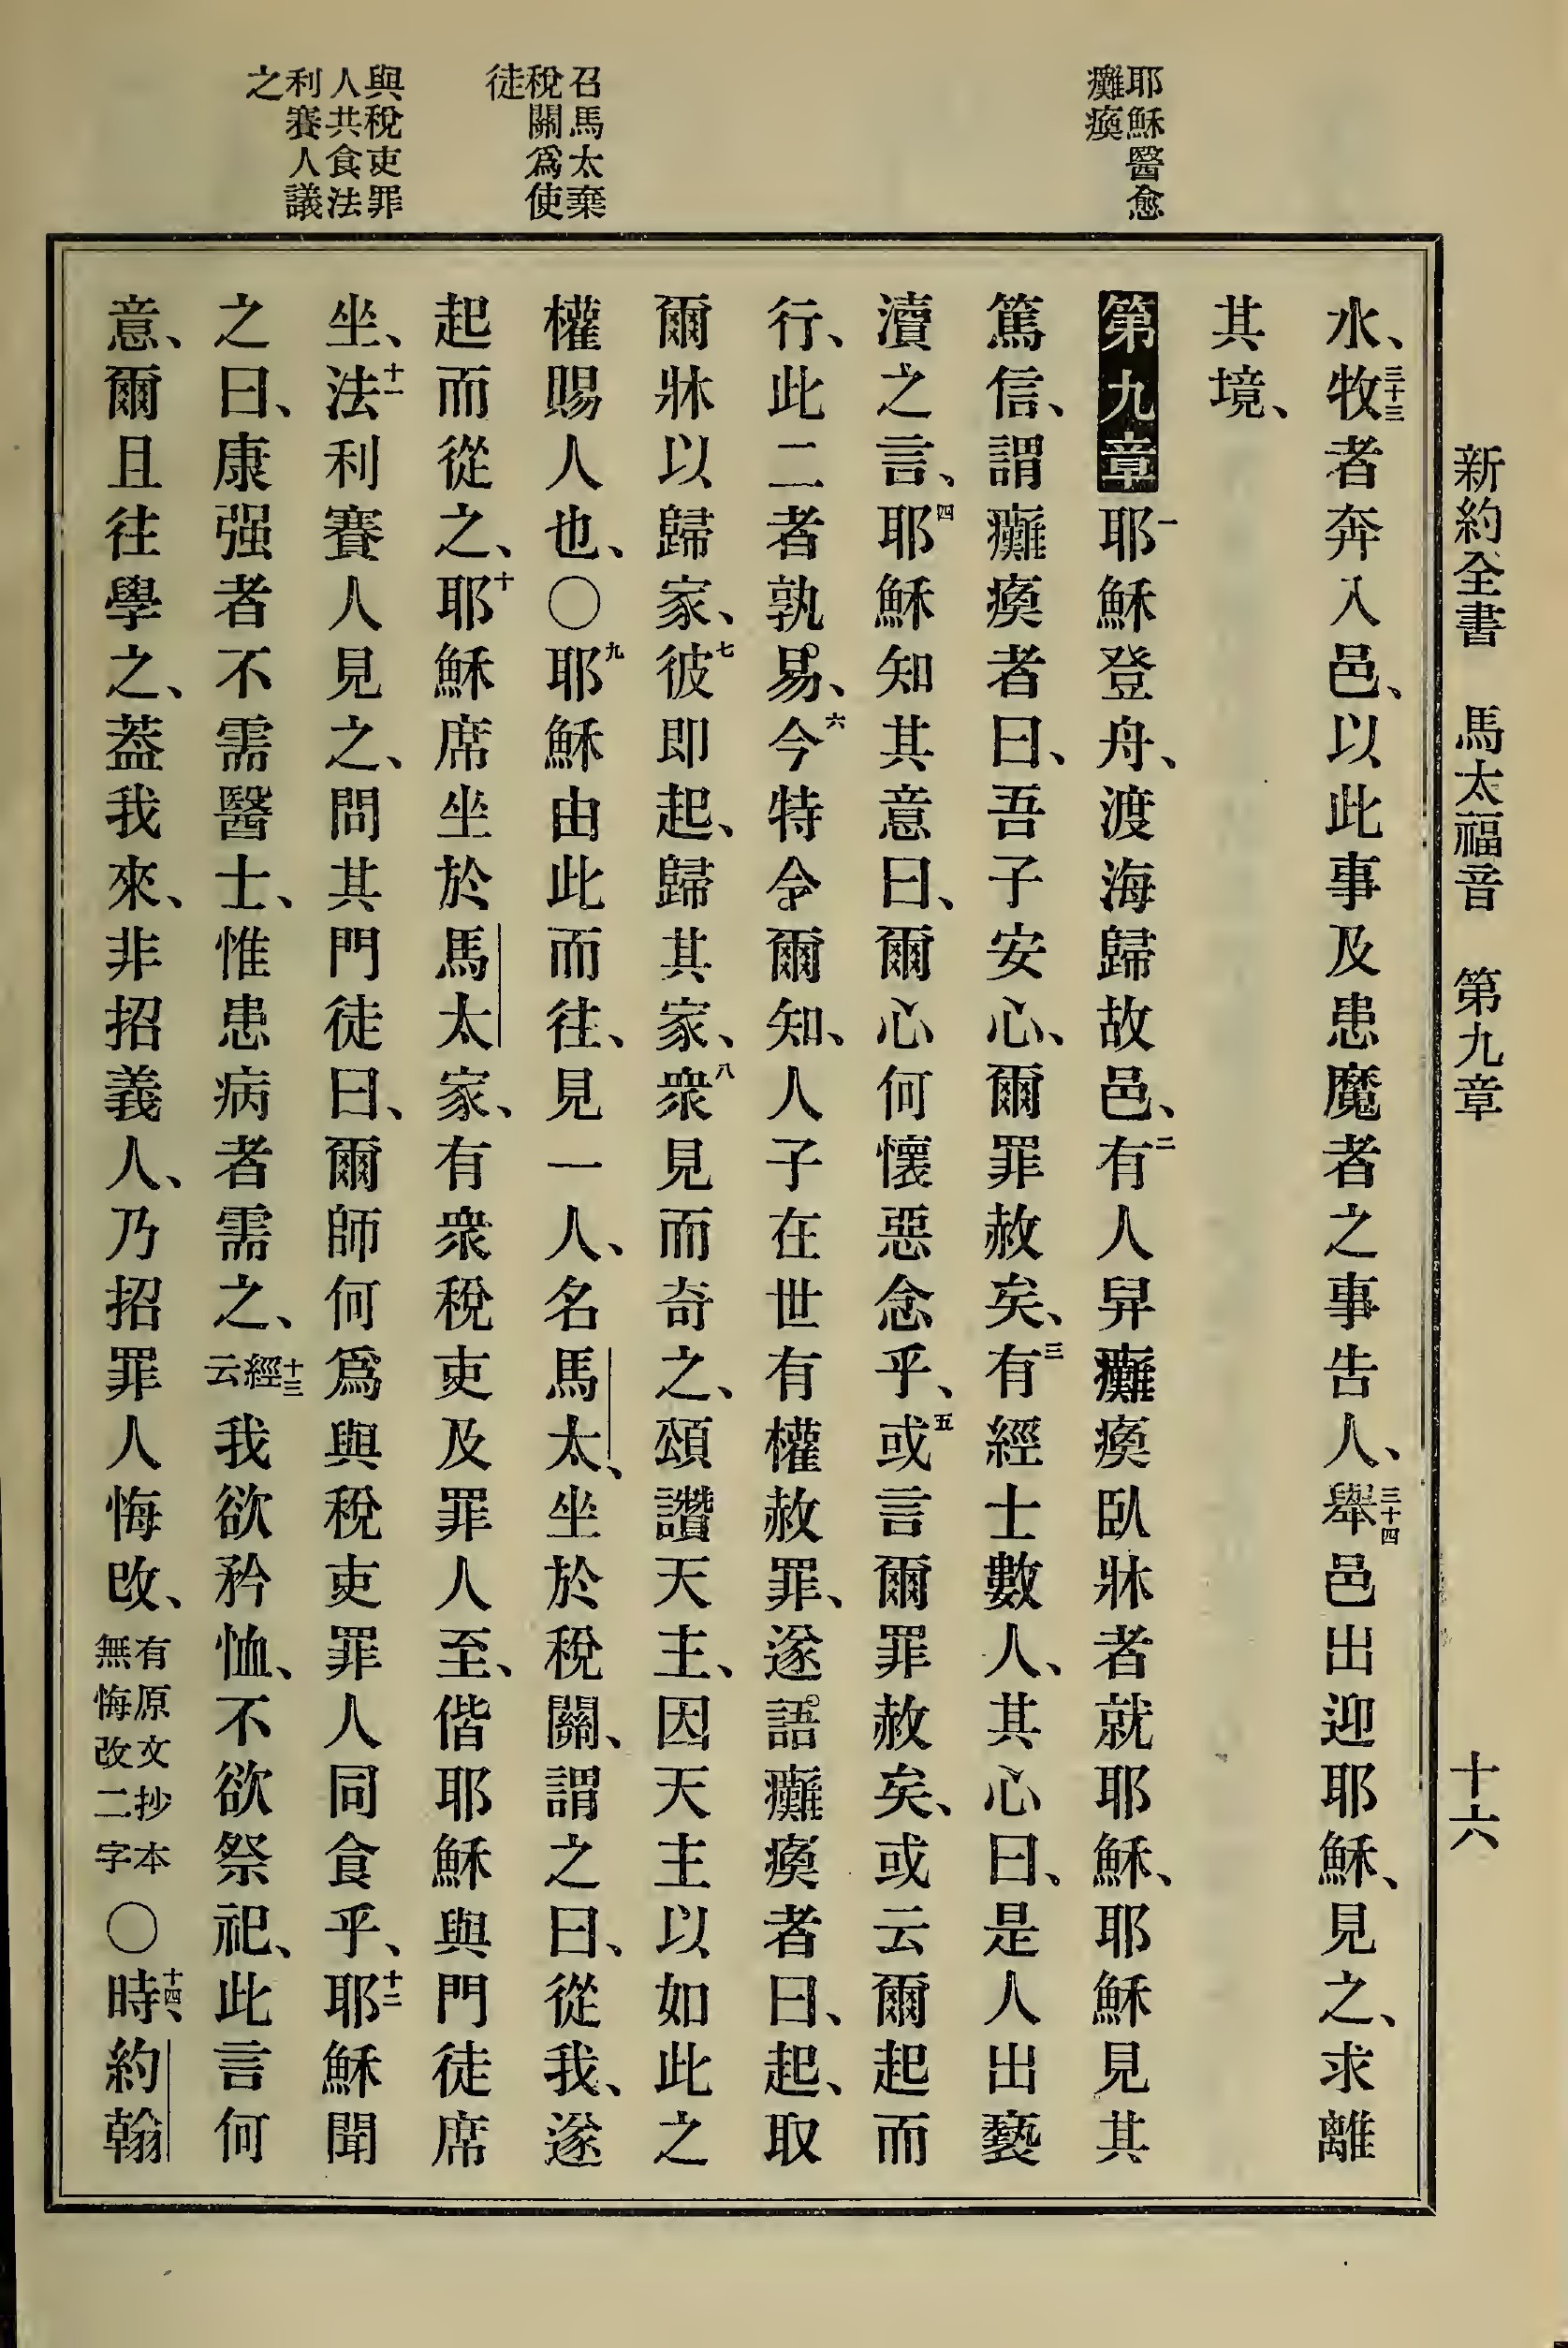 新約全書 馬太福音 第九章 十六
耶穌醫愈
癱瘓
召馬太棄
稅關爲使
徒
與稅吏罪
人共食法
利賽人議
之
水、三十三牧者奔入邑、以此事及患魔者之事告人、三十四舉邑出迎耶穌、見之、求離
其境、
第九章 一耶穌登舟、渡海歸故邑、二有人舁癱瘓臥牀者就耶穌、耶穌見其
篤信、謂癱瘓者曰、吾子安心、爾罪赦矣、三有經士數人、其心曰、是人出褻
瀆之言、四耶穌知其意曰、爾心何懷惡念乎、五或言爾罪赦矣、或云爾起而
行、此二者孰易、六今特令爾知、人子在世有權赦罪、遂語癱瘓者曰、起、取
爾牀以歸家、七彼即起、歸其家、八衆見而奇之、頌讚天主、因天主以如此之
權賜人也、〇九耶穌由此而往、見一人、名馬太、坐於稅關、謂之曰、從我、遂
起而從之、十耶穌席坐於馬太家、有衆稅吏及罪人至、偕耶穌與門徒席
坐、十一法利賽人見之、問其門徒曰、爾師何爲與稅吏罪人同食乎、十二耶穌聞
之曰、康强者不需醫士、惟患病者需之、十三經云我欲矜恤、不欲祭祀、此言何
意、爾且往學之、葢我來、非招義人、乃招罪人悔改、有原文抄本無悔改二字〇十四時、約翰